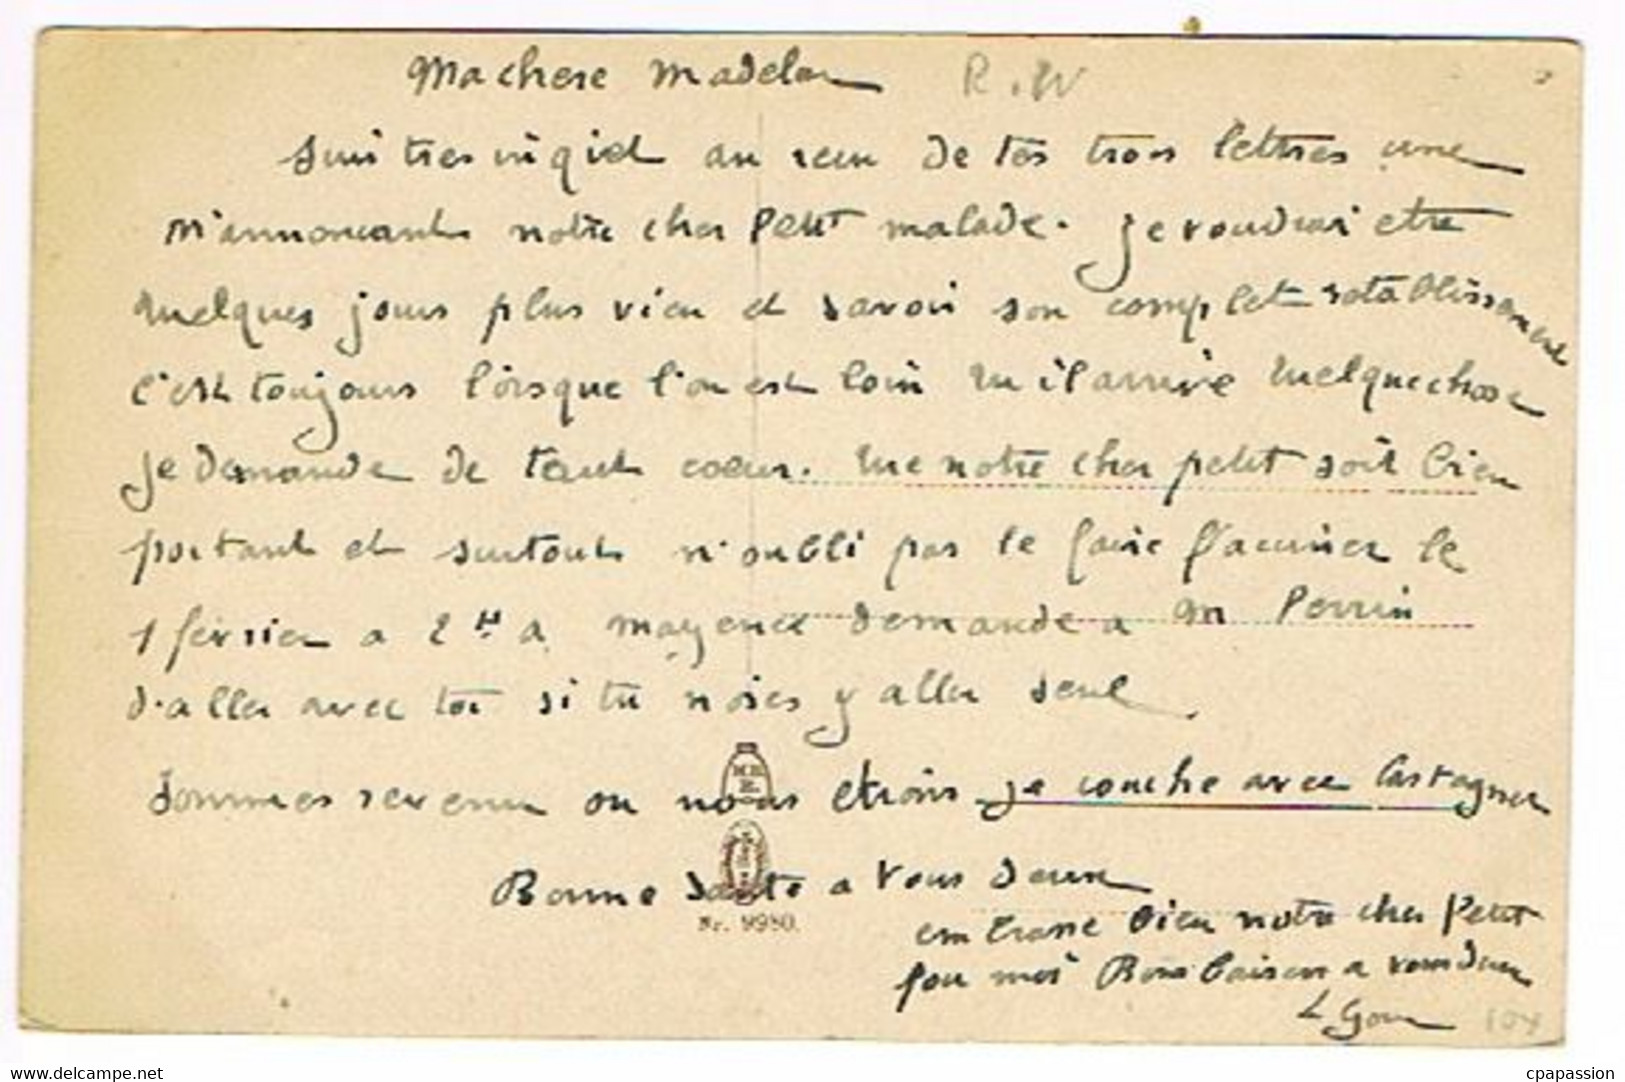 Ma chere Madelon R.W
suis tres inqiet au recu de tes trois lettres une
m'annoncant notre cher Petit malade. Je voudrai etre
quelques jours plus vieu et savoir son complet retablissement
c'est toujours lorsque l'on est loin qu'il arrive quelque chose
je demande de tout coeur. que notre cher petit soit bien
portant et surtout n'oubli pas le faire vacciner le
1 février a 2 H a mayence demande a M Perrin
d'aller avec toi si tu n'oses y aller seul.
Sommes revenu ou nous etions je couche avec Castagner
Bonne Santé a Vous deux
Nr. 9980.
embrasse bien notre cher Petit
pour moi Bons baisers a vous deux
L Gour 104
www.delcampe.net cpapassion